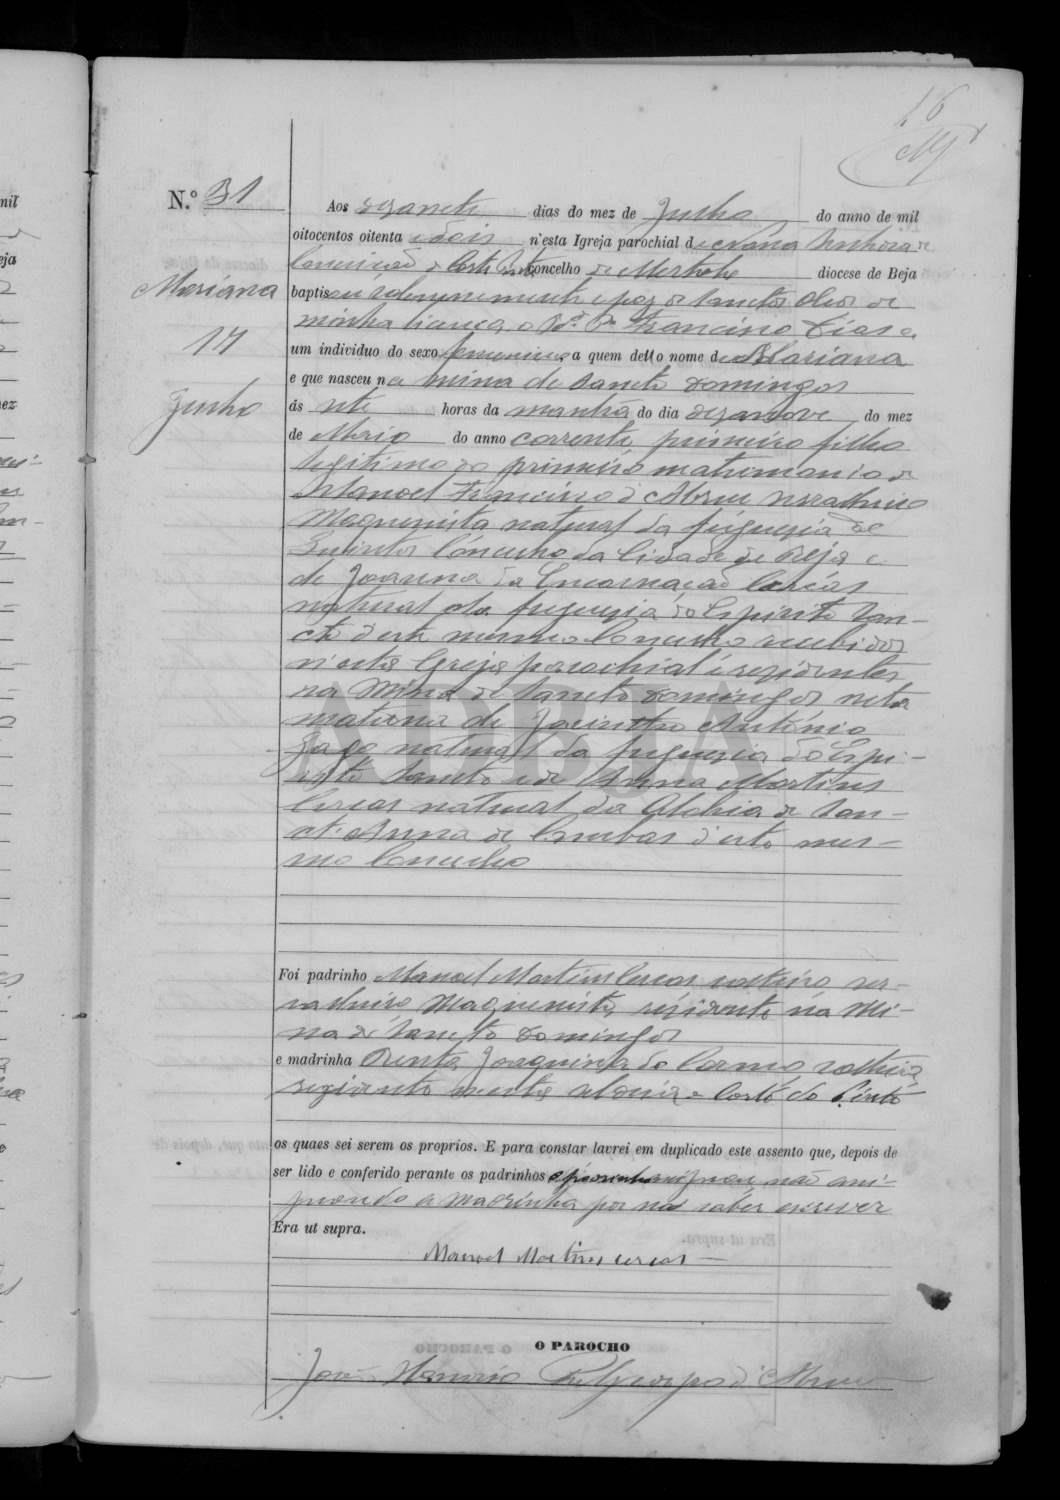 16
N.º 31
Aos desasete dias do mez de Junho do anno de mil
oitocentos oitenta e dois n'esta Igreja parochial de Nossa Senhora da
Conceição de Corte Pinto concelho de Mertola diocese de Beja
Mariana
baptisou solemnemente e poz os Sanctos Oleos de
minha licença o Francisco Dias
17
um individuo do sexo femenino, a quem deu o nome de Mariana
e que nasceu na mina de Sancto Domingos
Junho
ás sete horas da manhã do dia desanove do mez
de Maio do anno corrente primeiro filho
legitimo do primeiro matrimonio de
Manoel Francisco d'Abreu serralheiro
Maquinista natural da freguezia de
Quintos Concelho da Cidade de Beja e
de Joanna da Encarnação
natural da freguezia do Espirito San-
cto d'este mesmo Concelho recebidos
n'esta Igreja parochial e residentes
na Mina de Sancto Domingos neta
materna de Jacintho António
natural da freguezia do Espi-
rito Sancto e de Anna Martins
natural da Aldeia de San-
ct'Anna de Cambas d'este mes-
mo Concelho
Foi padrinho Manoel Martins solteiro ser-
ralheiro Maquinista, residente na Mi-
na de Sancto Domingos
e madrinha Joaquina do Carmo solteira
residente n'esta aldeia de Corte do Pinto
os quaes sei serem os proprios. E para constar lavrei em duplicado este assento que, depois de
ser lido e conferido perante os padrinhos o padrinho assignou não assi-
gnando a Madrinha por não saber escrever
Era ut supra.
Manoel Martins
O PAROCHO
João Honorio Polycarpo d'Abreu
ADBJA